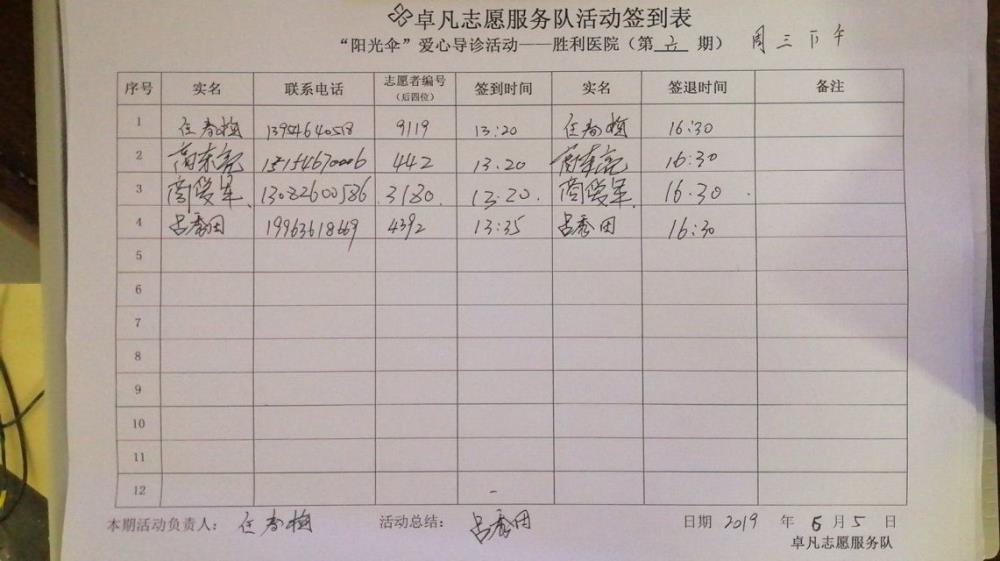 卓凡志愿服务队活动签到表
“阳光伞”爱心导诊活动——胜利医院（第 六 期） 周三下午
序号 实名 联系电话 志愿者编号（后四位） 签到时间 实名 签退时间 备注
1 任春梅 9119 13:20 任春梅 16:30
2 商东亮 15154670006 442 13:20 商东亮 16:30
3 商俊星 13082600586 3180 13:20 商俊星 16:30
4 吕秀田 19963618669 4392 13:35 吕秀田 16:30
5
6
7
8
9
10
11
12
本期活动负责人： 任春梅 活动总结： 吕秀田 日期 2019 年 6 月 5 日
卓凡志愿服务队